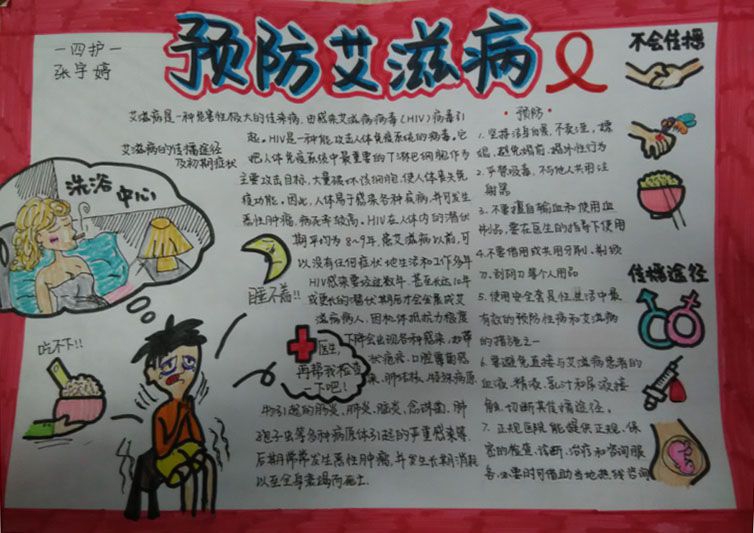 一四护一
张宇婷
预防艾滋病
艾滋病的传播途径
及初期症状
洗浴中心
吃不下!!
睡不着!!
医生,
再帮我检查
一下吧!
艾滋病是一种危害性极大的传染病,由感染艾滋病病毒(HIV)病毒引
起。HIV是一种能攻击人体免疫系统的病毒。它
把人体免疫系统中最重要的T淋巴细胞作为
主要攻击目标,大量破坏该细胞,使人体丧失免
疫功能。因此,人体易于感染各种疾病,并可发生
恶性肿瘤,病死率较高。HIV在人体内的潜伏
期平均为8~9年,患艾滋病以前,可
以没有任何症状地生活和工作多年
HIV感染要经过数年、甚至长达10年
或更长的潜伏期后才会发展成艾
滋病病人,因机体抵抗力极度
下降会出现各种感染,如带
状疱疹、口腔霉菌感
染、肺结核、特殊病原
物引起的肠炎、肺炎、脑炎、念珠菌、肺
孢子虫等多种病原体引起的严重感染等,
后期常常发生恶性肿瘤,并发生长期消耗
以至全身衰竭而死亡.
·预防·
1.坚持洁身自爱,不卖淫、嫖
娼,避免婚前、婚外性行为
2.严禁吸毒,不与他人共用注
射器
3.不要擅自输血和使用血
制品,要在医生的指导下使用
4.不要借用或共用牙刷、剃须
刀、刮阴刀等个人用品
5.使用安全套是性生活中最
有效的预防性病和艾滋病
的措施之一
6.要避免直接与艾滋病患者的
血液、精液、乳汁和尿液接
触,切断其传播途径。
7.正规医院能提供正规、保
密的检查、诊断、治疗和咨询服
务,必要时可借助当地热线咨询
不会传播
传播途径